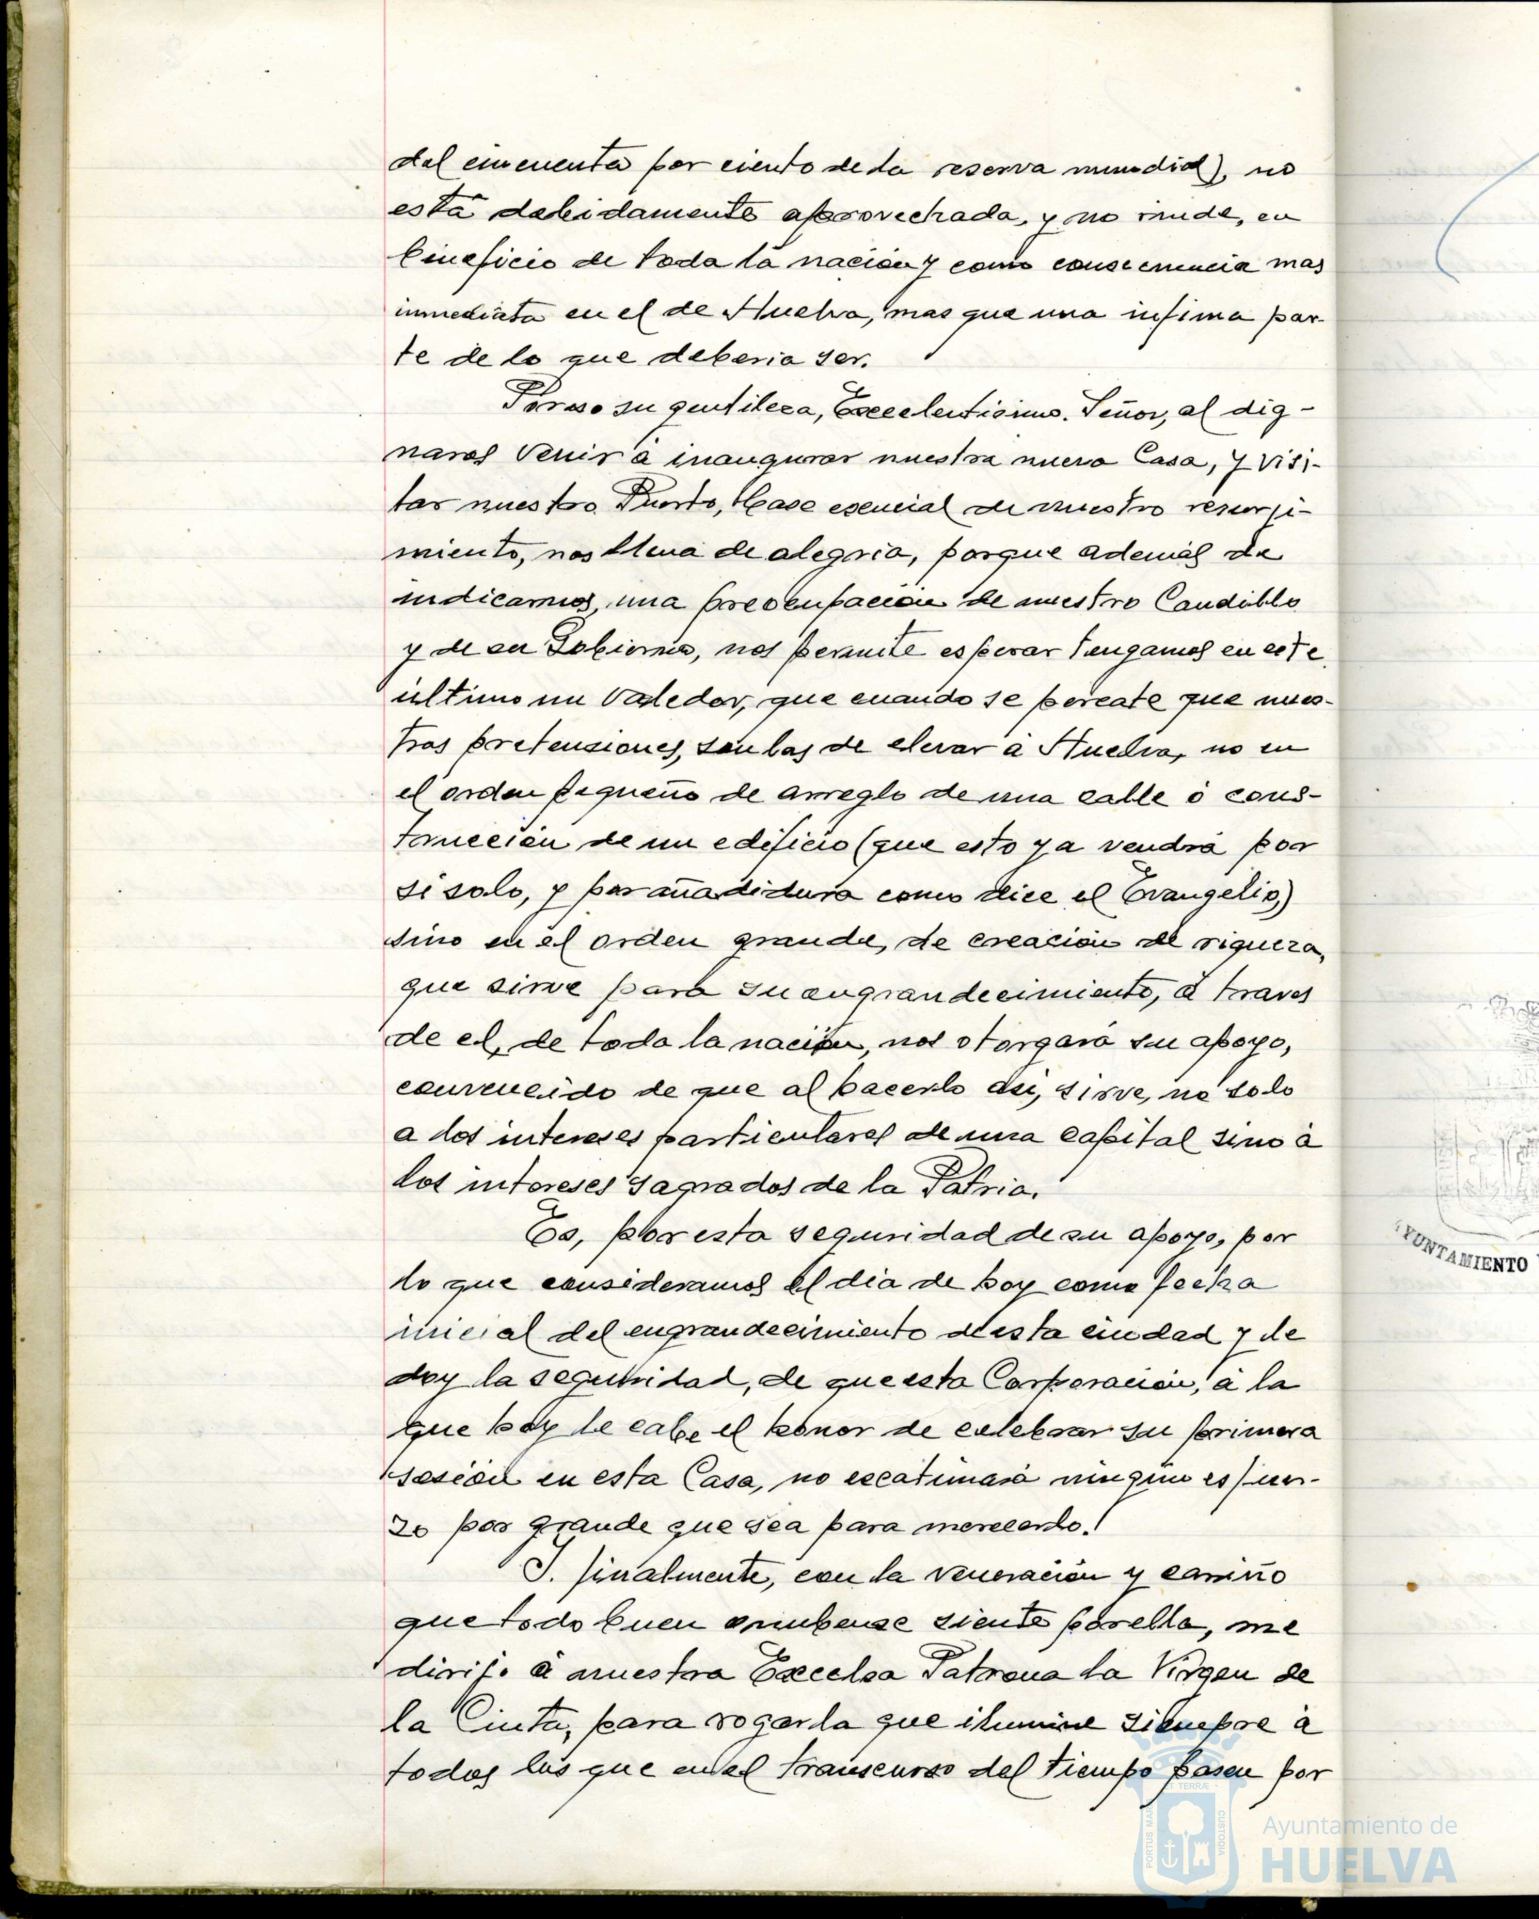 del cincuenta por ciento de la reserva mundial), no
está debidamente aprovechada, y no rinde, en
beneficio de toda la nación y como consecuencia mas
inmediata en el de Huelva, mas que una infima par-
te de lo que deberia ser.
Por eso su gentileza, Excelentisimo. Señor, al dig-
naros venir á inaugurar nuestra nueva Casa, y visi-
tar nuestro Puerto, base esencial de nuestro resurji-
miento, nos llena de alegria, porque además de
indicarnos, una preocupación de nuestro Caudillo
y de su Gobierno, nos permite esperar tengamos en este
último un valedor, que cuando se percate que nues-
tras pretensiones, son las de elevar á Huelva, no en
el orden pequeño de arreglo de una calle ó cons-
trucción de un edificio (que esto ya vendrá por
si solo, y por añadidura como dice el Evangelio,)
sino en el orden grande, de creación de riqueza,
que sirve para su engrandecimiento, á traves
de el, de toda la nación, nos otorgará su apoyo,
convencido de que al hacerlo asi, sirve, no solo
a los intereses particulares de una capital sino á
los intereses sagrados de la Patria.
Es, por esta seguridad de su apoyo, por
lo que consideramos el dia de hoy como fecha
inicial del engrandecimiento de esta ciudad y le
doy la seguridad, de que esta Corporación, á la
que hoy le cabe el honor de celebrar su primera
sesión en esta Casa, no escatimará ningún esfuer-
zo por grande que sea para merecerlo.
Y. finalmente, con la veneración y cariño
que todo buen onubense siente por ella, me
dirijo á nuestra Excelsa Patrona la Virgen de
la Cinta, para rogarla que ilumine siempre á
todos los que en el transcurso del tiempo pasen por
AYUNTAMIENTO
PORTUS MARIS ET TERRÆ CUSTODIA
Ayuntamiento de
HUELVA